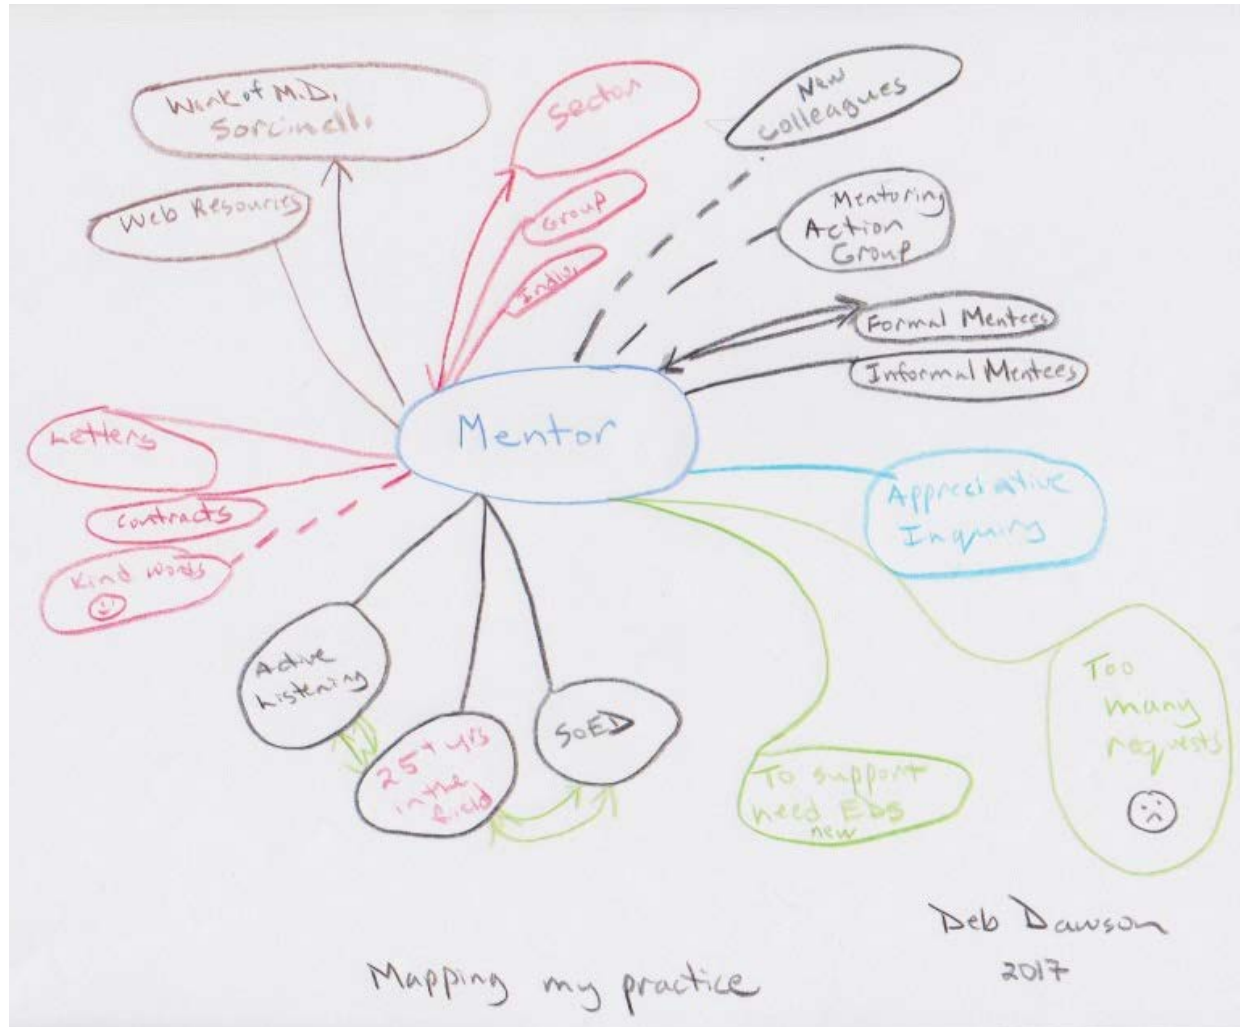 Work of M.D.
Sorcinelli
Web Resources
Sector
Group
Indiv.
New
Colleagues
Mentoring
Action
Group
Formal Mentees
Informal Mentees
Mentor
Letters
Contracts
Kind words
Appreciative
Inquiry
Active
Listening
25+ yrs
in the
field
SoED
To support
need EDs
new
Too
many
requests
Deb Dawson
2017
Mapping my practice